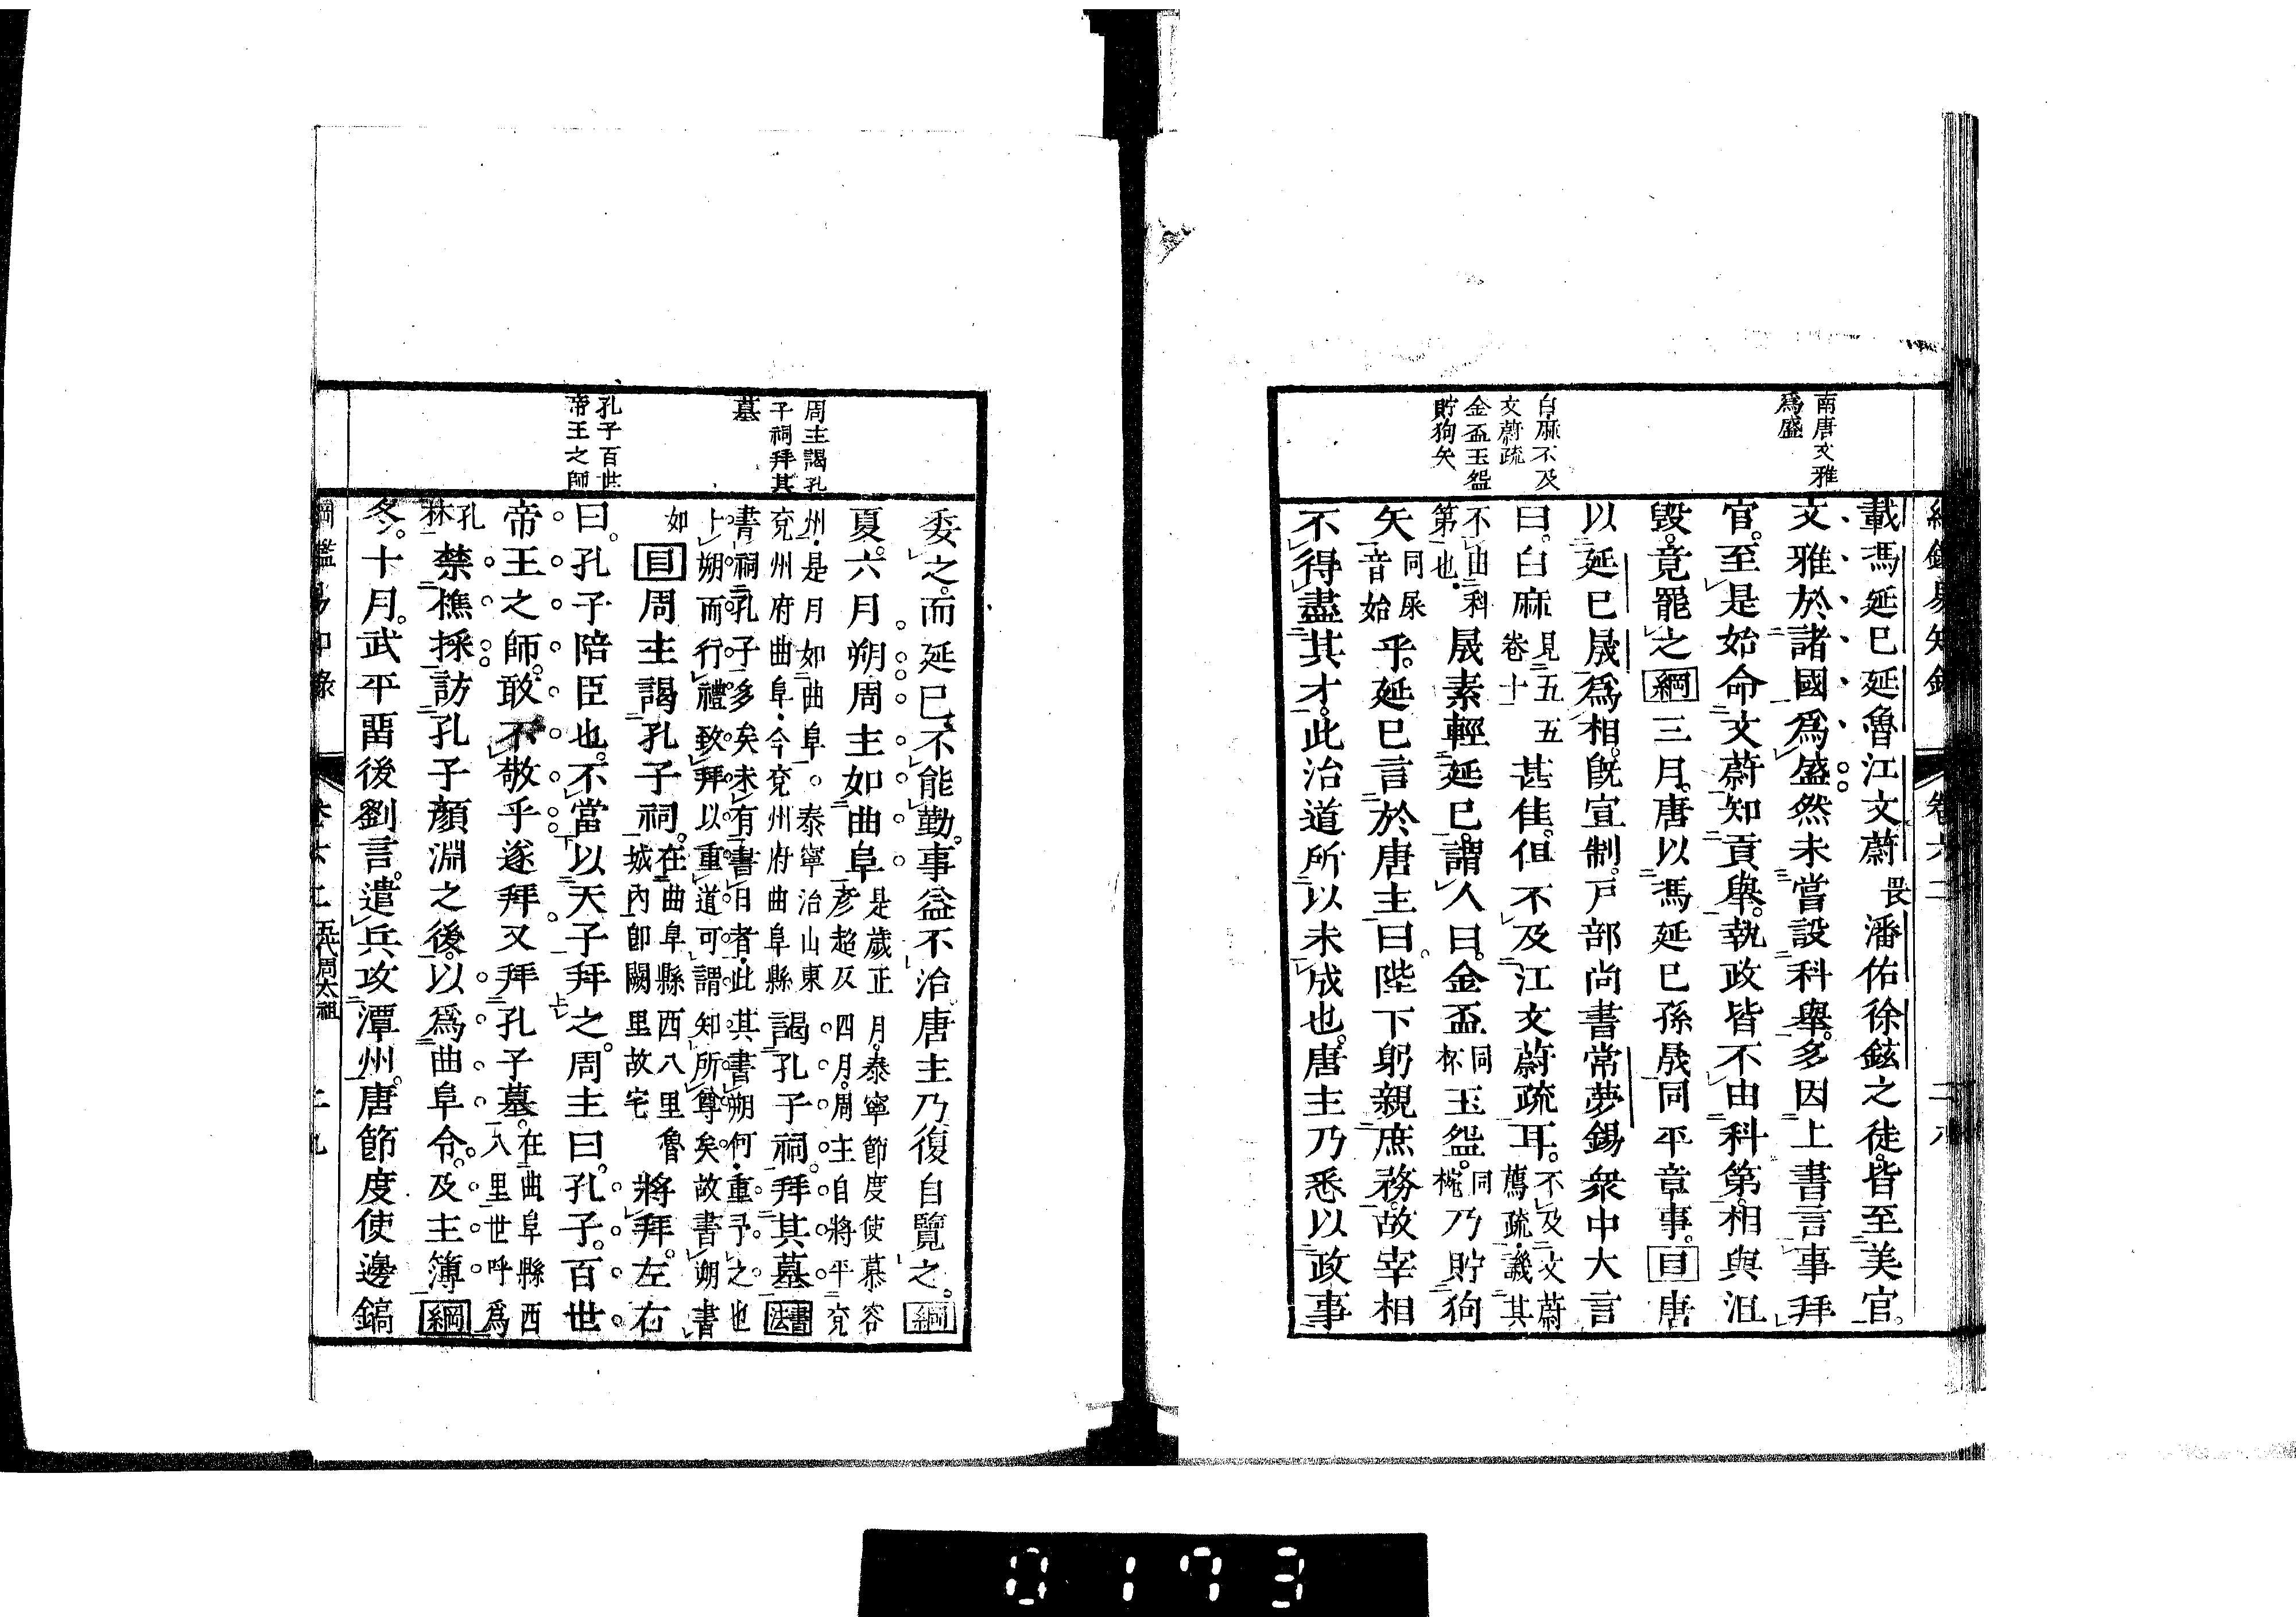 南唐文雅
爲盛
白麻不及
文蔚疏
金盃玉盌
貯狗矢
載馮延巳延魯江文蔚畏潘佑徐鉉之徒皆至美官。
文雅於諸國爲盛然未嘗設科舉。多因上書言事拜
官。至是始命文蔚知貢舉。執政皆不由科第。相與沮
毀。竟罷之綱三月。唐以馮延巳孫晟同平章事。目唐
以延巳晟爲相。旣宣制。戸部尚書常夢錫衆中大言
曰。白麻見五五卷十甚佳。但不及江文蔚疏耳。不及文蔚薦疏・譏其
不由科第也・晟素輕延巳。謂人曰。金盃同杯玉盌。同椀乃貯狗
矢同屎音始乎。延巳言於唐主曰。陛下躬親庶務。故宰相
不得盡其才。此治道所以未成也。唐主乃悉以政事
周主謁孔
子祠拜其
墓
孔子百世
帝王之師
委之。而延巳不能勤。事益不治。唐主乃復自覽之。綱
夏。六月朔周主如曲阜是歲正月。泰寧節度使慕容彥超反四月。周主自將平兗
州・是月如曲阜。泰寧治山東兗州府曲阜・今兗州府曲阜縣謁孔子祠。拜其墓書法
書祠孔子多矣未有書日者・此其書朔何・重予之也
上朔而行禮致拜以重道可謂知所尊矣故書朔書
如目周主謁孔子祠。在曲阜縣西八里魯城內卽闕里故宅將拜。左右
曰。孔子陪臣也。不當以天子拜之。周主曰。孔子。百世
帝王之師。敢不敬乎遂拜又拜孔子墓。在曲阜縣西八里世呼爲
孔林禁樵採訪孔子顏淵之後。以爲曲阜令。及主簿綱
冬。十月。武平畱後劉言。遣兵攻潭州。唐節度使邊鎬
五代周太祖
0173